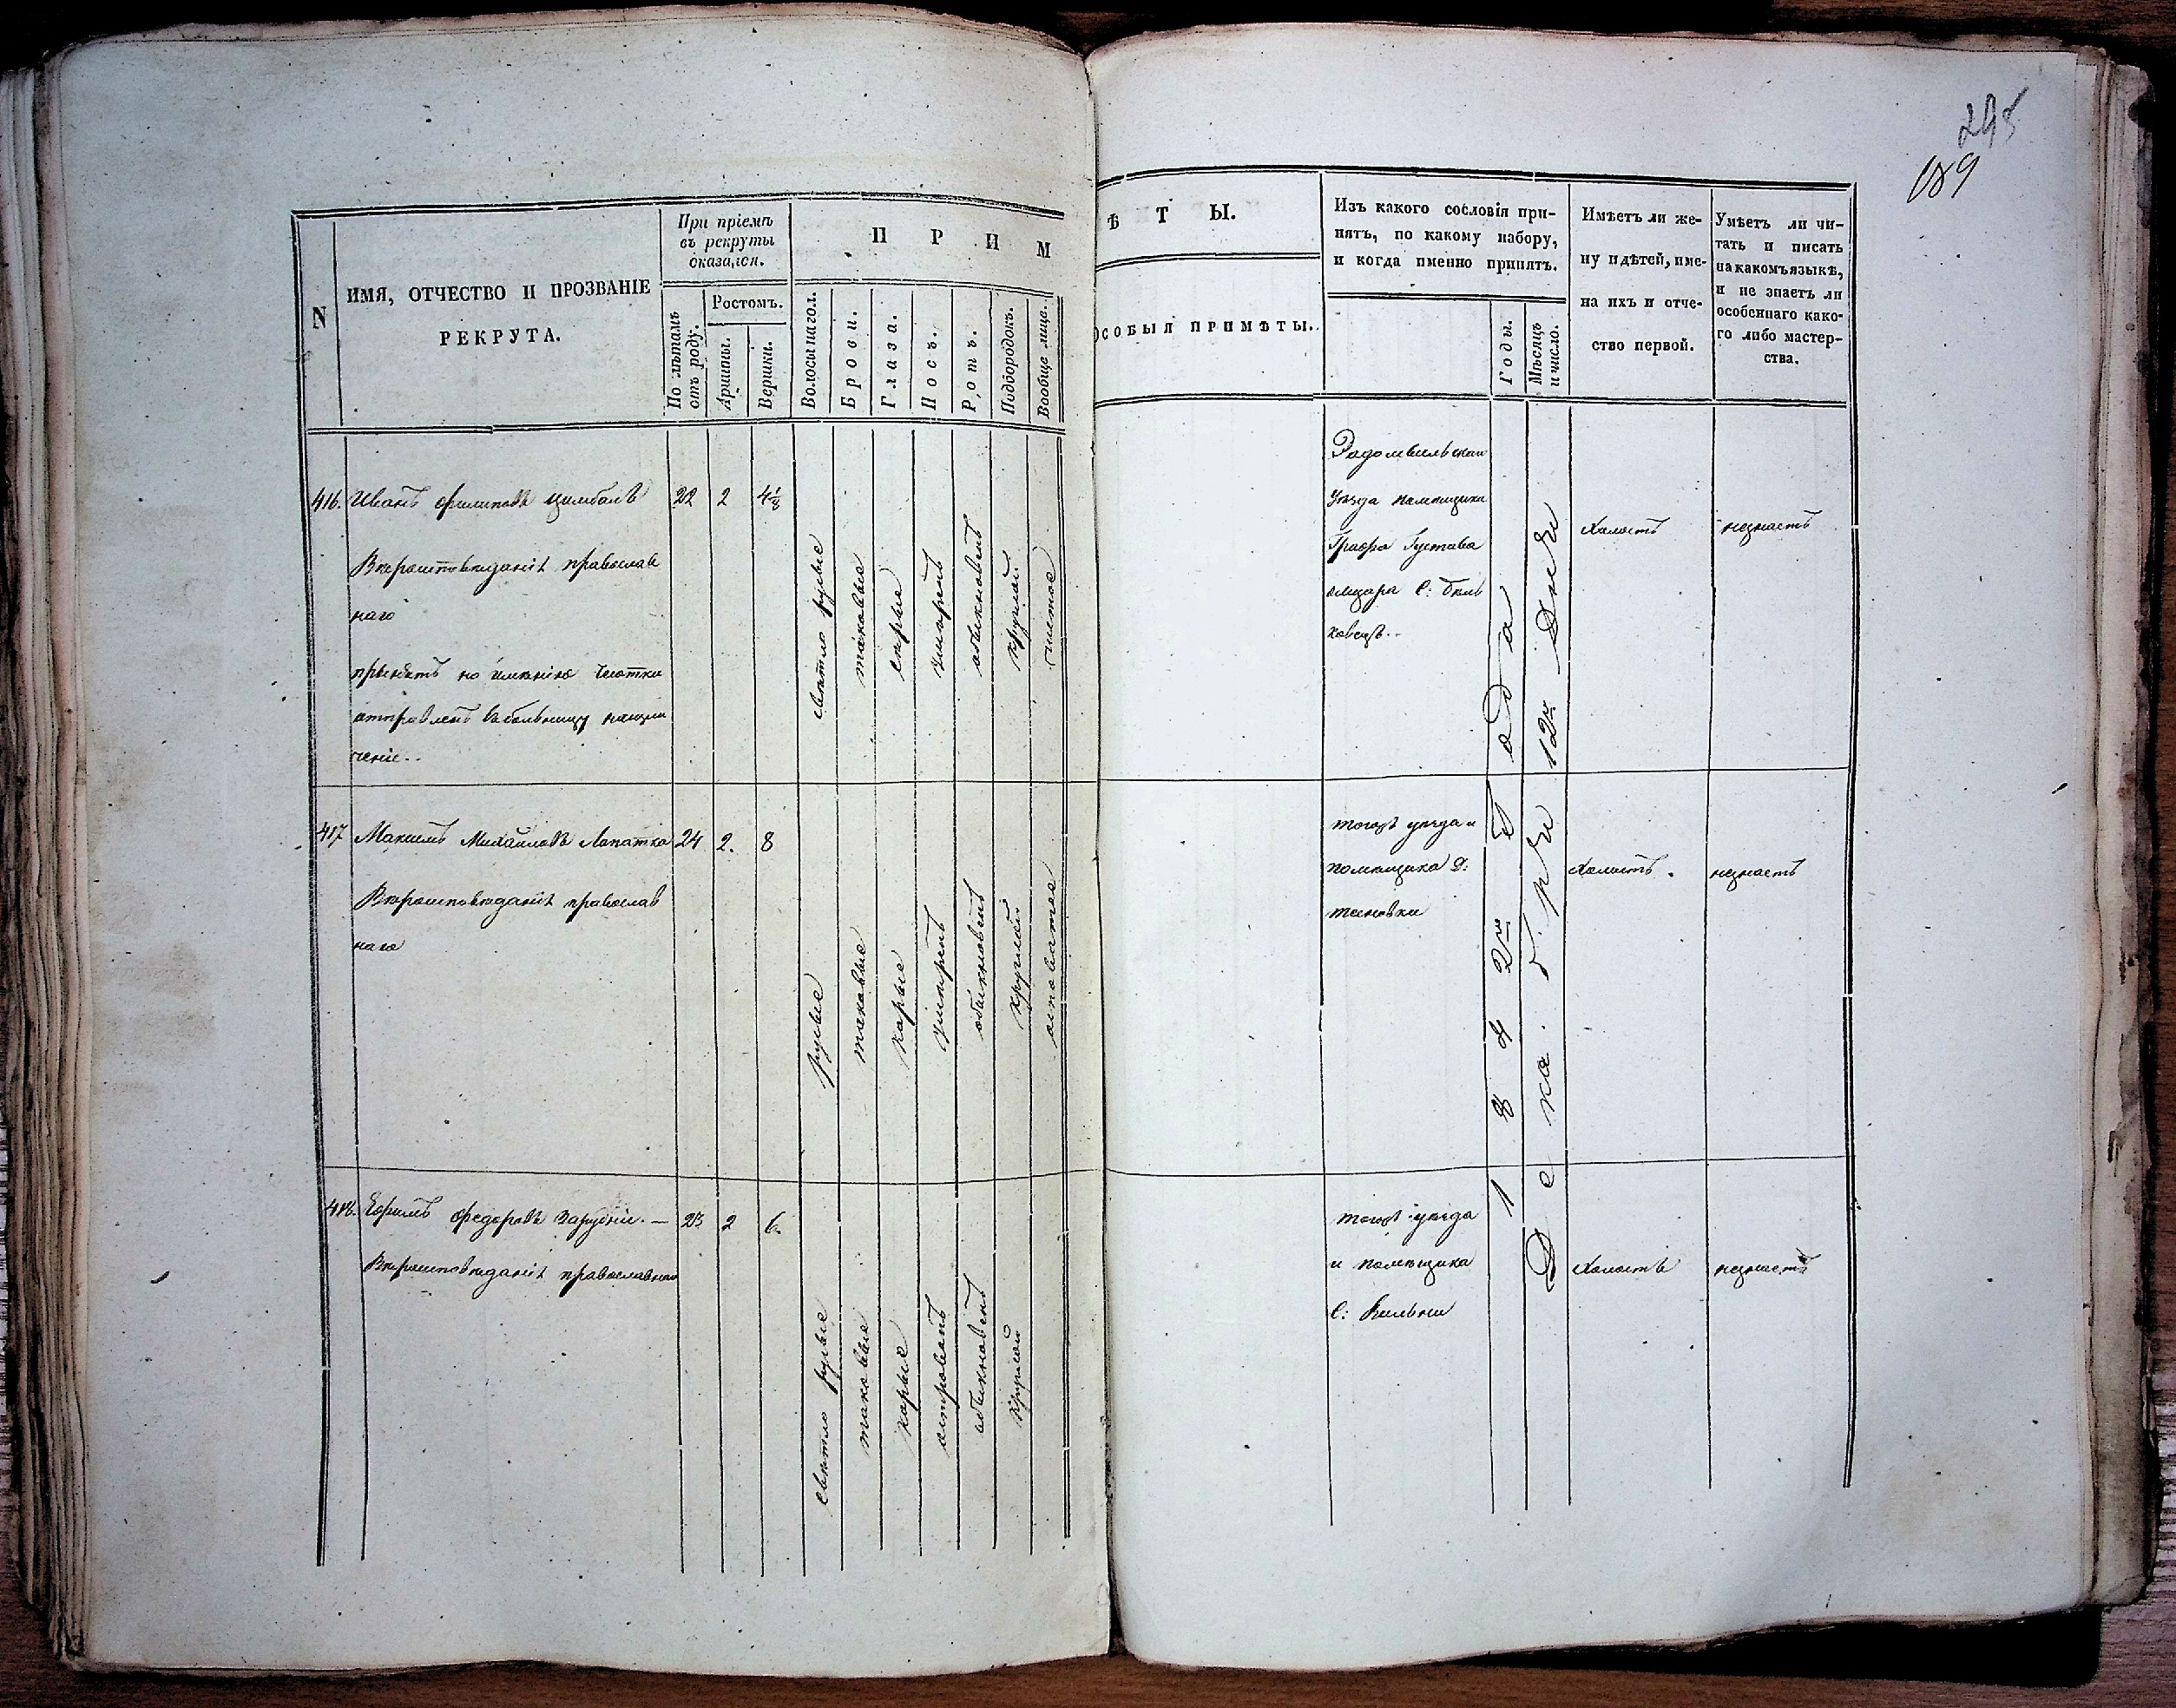 295
189
N
ИМЯ, ОТЧЕСТВО И ПРОЗВАНІЕ
РЕКРУТА.
При пріемѣ
въ рекруты
оказался.
По лѣтамъ
отъ роду.
Ростомъ.
Аршины.
Вершки.
П Р И М
Волосы на гол.
Брови.
Глаза.
Носъ.
Ротъ.
Подбородокъ.
Вообще лице.
Ѣ Т Ы.
ОСОБЫЯ ПРИМѢТЫ.
Изъ какого сословія при-
нятъ, по какому набору,
и когда именно принятъ.
Годы.
Мѣсяцъ
и число.
Имѣетъ ли же-
ну и дѣтей, име-
на ихъ и отче-
ство первой.
Умѣетъ ли чи-
тать и писать
на какомъ языкѣ,
и не знаетъ ли
особеннаго како-
го либо мастер-
ства.
416. Иванъ Филиповъ Цимбалъ 22 2 4⅛
Вѣроисповѣданія православ
наго
отправленъ въ больницу
ченіе..
свѣтло русые
таковые
сѣрые
умѣренъ
обыкновенъ
круглой
чистое
Радомысльскаго
уѣзда помѣщика
Графа Густава
Олизара С:
Холостъ
незнаетъ
417 Максимъ Михайловъ Лопатка 24 2. 8
Вѣроисповѣданія православ
наго
русые
таковые
карые
умѣренъ
обыкновенъ
круглой
осповатое
тогожъ уѣзда и
помѣщика Д:
Холостъ.
незнаетъ
418. Ефимъ Федоровъ — 23 2 6.
Вѣроисповѣданія православнаго
свѣтло русые
таковые
карые
островатъ
обыкновенъ
круглой
тогожъ уѣзда
и помѣщика
С: Вильни
1842го Года
Декабря 12го Дня
Холостъ
незнаетъ